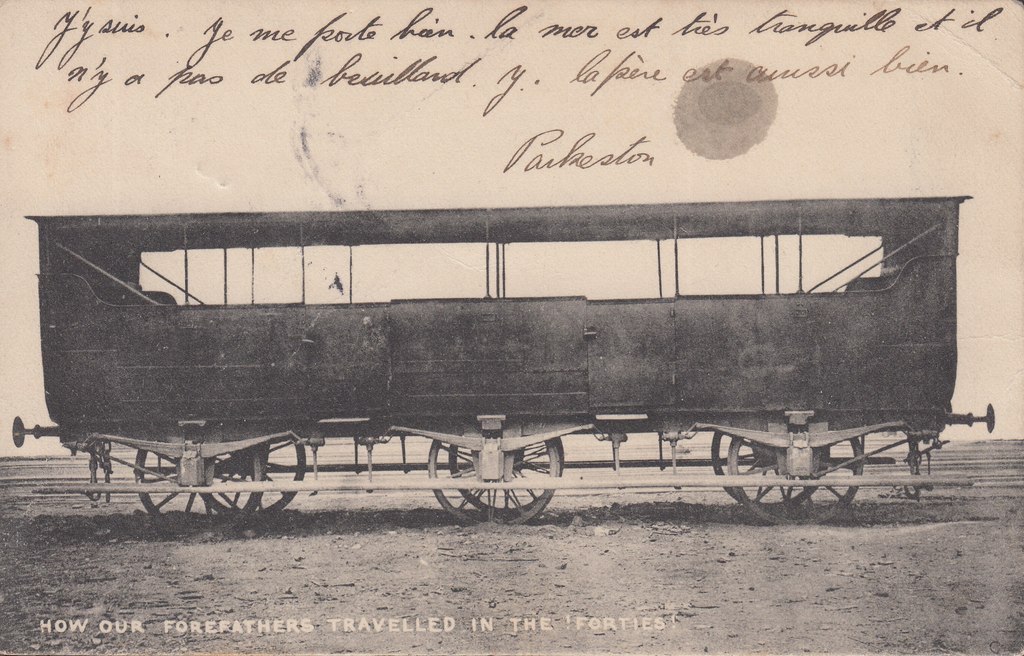 J'y suis. Je me porte bien. la mer est très tranquille et il
n'y a pas de brouillard. y. la père est aussi bien.
Parkeston
HOW OUR FOREFATHERS TRAVELLED IN THE 'FORTIES'